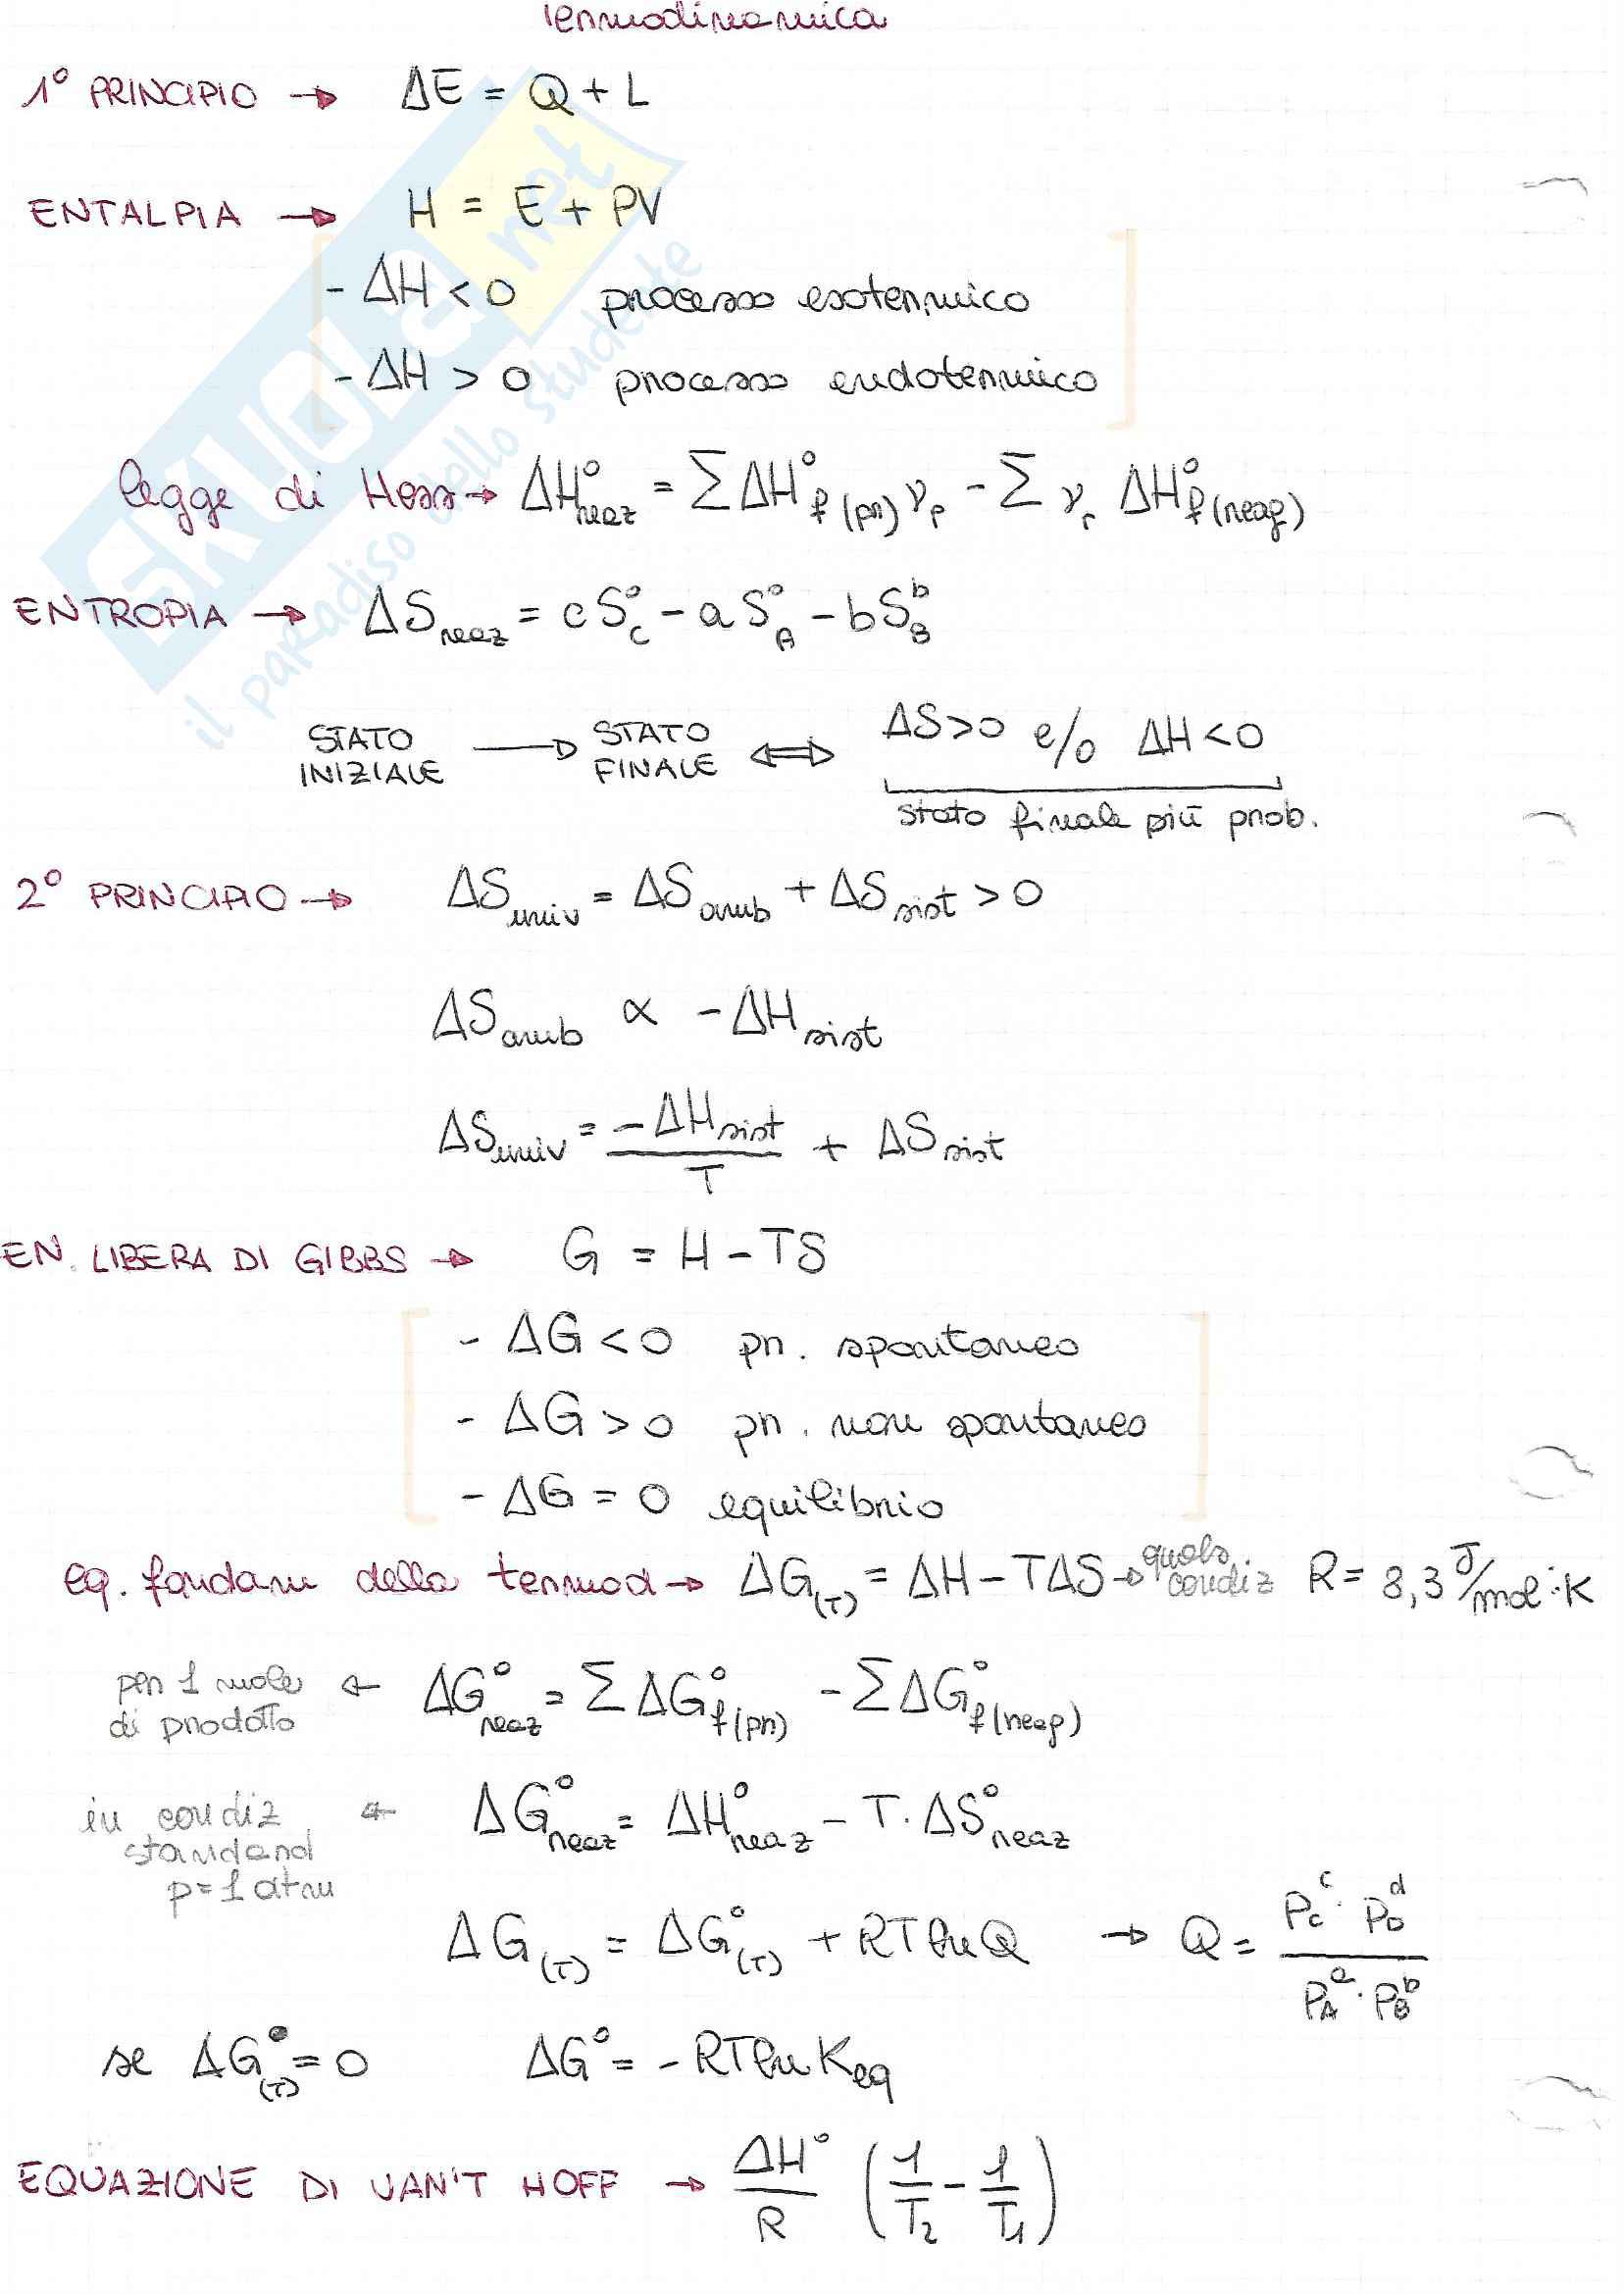 Termodinamica
1° PRINCIPIO → ΔE = Q + L
ENTALPIA → H = E + PV
- ΔH < 0 processo esotermico
- ΔH > 0 processo endotermico
legge di Hess → ΔH°reaz = Σ ΔH°f (pr) νp - Σ νr ΔH°f (reag)
ENTROPIA → ΔSreaz = cS°C - aS°A - bS^bB
STATO INIZIALE → STATO FINALE ⇔ ΔS>0 e/o ΔH<0
stato finale più prob.
2° PRINCIPIO → ΔSuniv = ΔSamb + ΔSsist > 0
ΔSamb ∝ -ΔHsist
ΔSuniv = -ΔHsist / T + ΔSsist
EN. LIBERA DI GIBBS → G = H - TS
- ΔG < 0 pr. spontaneo
- ΔG > 0 pr. non spontaneo
- ΔG = 0 equilibrio
eq. fondam della termod → ΔG(T) = ΔH - TΔS → quals condiz R = 8,3 J/mol·K
per 1 mole di prodotto ← ΔG°reaz = Σ ΔG°f(pr) - Σ ΔG°f(reag)
in condiz standard p=1 atm ← ΔG°reaz = ΔH°reaz - T·ΔS°reaz
ΔG(T) = ΔG°(T) + RT ln Q → Q = PC^c · PD^d / PA^a · PB^b
se ΔG°(T) = 0 ΔG° = - RT ln Keq
EQUAZIONE DI VAN'T HOFF → ΔH°/R (1/T2 - 1/T1)
SKUOLA.net
il paradiso dello studente